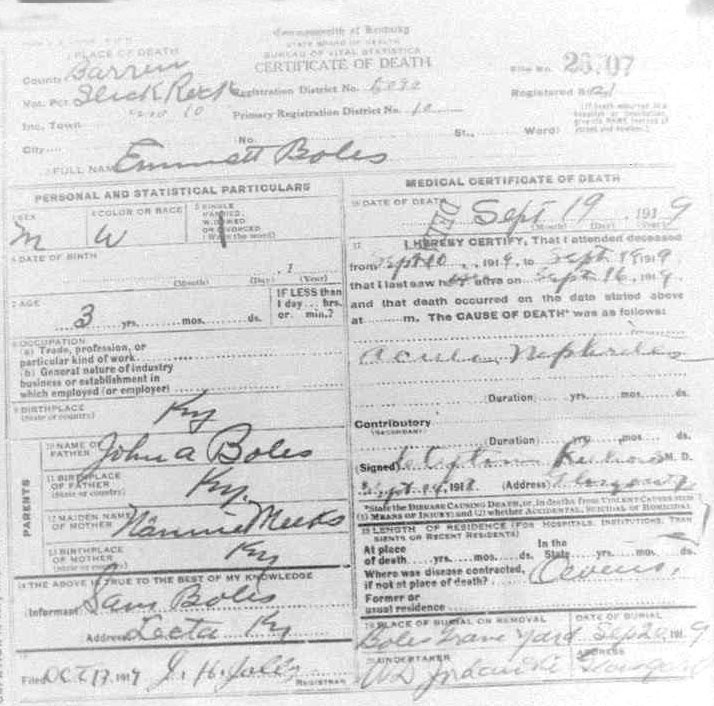 Commonwealth of Kentucky
STATE BOARD OF HEALTH
BUREAU OF VITAL STATISTICS
CERTIFICATE OF DEATH
1 PLACE OF DEATH
County Barren
Vot. Pct. Slick Rock Registration District No.
File No.
Registered No.
Inc. Town Primary Registration District No. 10
City No. St., Ward)
2 FULL NAME Emmett Boles
PERSONAL AND STATISTICAL PARTICULARS
3 SEX M
4 COLOR OR RACE W
5 SINGLE
MARRIED,
WIDOWED
OR DIVORCED
(Write the word)
6 DATE OF BIRTH
, 1
(Month) (Day) (Year)
7 AGE
3 yrs. mos. ds.
IF LESS than
1 day... hrs.
or min.?
8 OCCUPATION
(a) Trade, profession, or
particular kind of work
(b) General nature of industry
business or establishment in
which employed (or employer)
9 BIRTHPLACE
(State or country) Ky
PARENTS
10 NAME OF
FATHER John A Boles
11 BIRTHPLACE
OF FATHER
(State or country) Ky.
12 MAIDEN NAME
OF MOTHER Nannie Meeks
13 BIRTHPLACE
OF MOTHER
(State or country) Ky
14 THE ABOVE IS TRUE TO THE BEST OF MY KNOWLEDGE
Informant Sam Boles
Address Lecta Ky
15
Filed OCT 17, 1919 J. H.
REGISTRAR
MEDICAL CERTIFICATE OF DEATH
16 DATE OF DEATH
Sept 19, 1919
(Month) (Day) (Year)
17 I HEREBY CERTIFY, That I attended deceased
from Sept 10, 1919, to Sept 18 1919
that I last saw h alive on Sept 16, 1919
and that death occurred on the date stated above
at m. The CAUSE OF DEATH* was as follows:
Nephritis
(Duration) yrs. mos. ds.
Contributory
(SECONDARY)
(Duration) yrs. mos. ds.
Signed M. D.
Sept 191 (Address)
*State the DISEASE CAUSING DEATH, or, in deaths from VIOLENT CAUSES state
(1) MEANS OF INJURY; and (2) whether ACCIDENTAL, SUICIDAL or HOMICIDAL
18 LENGTH OF RESIDENCE (FOR HOSPITALS, INSTITUTIONS, TRAN
SIENTS OR RECENT RESIDENTS)
At place In the
of death yrs. mos. ds. State yrs. mos. ds.
Where was disease contracted,
if not at place of death?
Former or
usual residence
19 PLACE OF BURIAL OR REMOVAL
Boles Grave Yard
DATE OF BURIAL
Sep 20, 1919
20 UNDERTAKER
ADDRESS